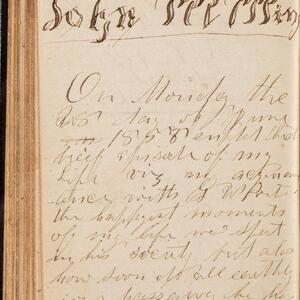 John M
On Monday the
28 day of June
1858 ended this
brief episode of my
Life viz my acquain
tance with S W Porter
the happyest moments
of my life we spent
in his society but alas
how soon do all earthly